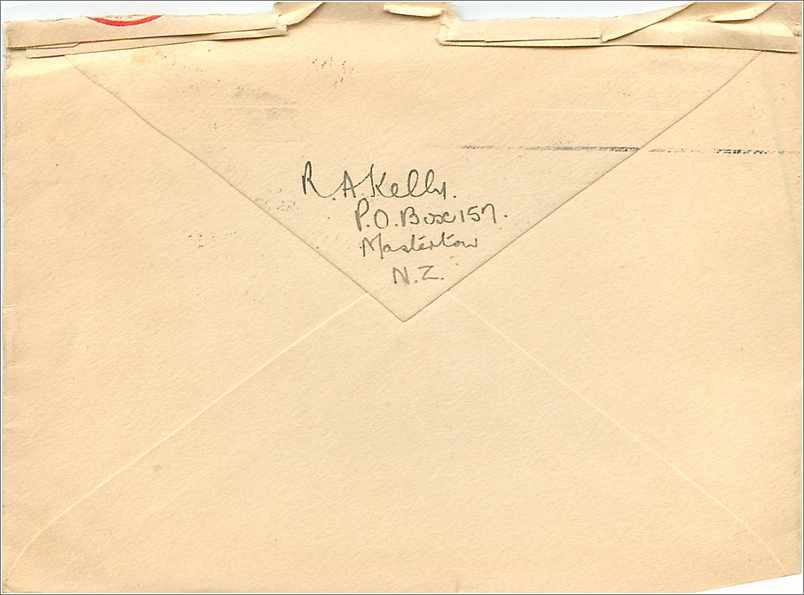 R. A. Kelly.
P.O. Box 157.
Masterton
N.Z.